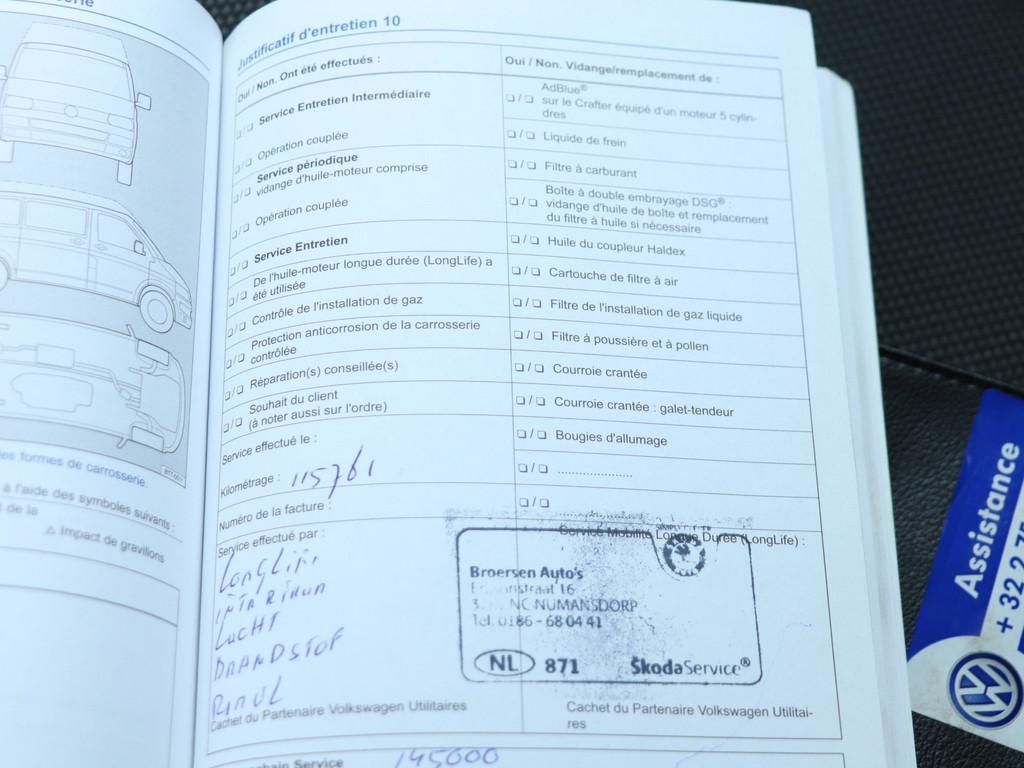 serie
les formes de carrosserie.
à l'aide des symboles suivants :
t de la
⚠ Impact de gravillons
Justificatif d'entretien 10
Oui / Non. Ont été effectués :
❑ / ❑ Service Entretien Intermédiaire
❑ / ❑ Opération couplée
Service périodique
❑ / ❑ vidange d'huile-moteur comprise
❑ / ❑ Opération couplée
❑ / ❑ Service Entretien
De l'huile-moteur longue durée (LongLife) a
❑ / ❑ été utilisée
❑ / ❑ Contrôle de l'installation de gaz
Protection anticorrosion de la carrosserie
❑ / ❑ contrôlée
❑ / ❑ Réparation(s) conseillée(s)
Souhait du client
❑ / ❑ (à noter aussi sur l'ordre)
Service effectué le :
Kilométrage : 115761
Numéro de la facture :
Service effectué par :
LUCHT
BRANDSTOF
Cachet du Partenaire Volkswagen Utilitaires
Oui / Non. Vidange/remplacement de :
AdBlue®
❑ / ❑ sur le Crafter équipé d'un moteur 5 cylin-
dres
❑ / ❑ Liquide de frein
❑ / ❑ Filtre à carburant
Boîte à double embrayage DSG® :
❑ / ❑ vidange d'huile de boîte et remplacement
du filtre à huile si nécessaire
❑ / ❑ Huile du coupleur Haldex
❑ / ❑ Cartouche de filtre à air
❑ / ❑ Filtre de l'installation de gaz liquide
❑ / ❑ Filtre à poussière et à pollen
❑ / ❑ Courroie crantée
❑ / ❑ Courroie crantée : galet-tendeur
❑ / ❑ Bougies d'allumage
❑ / ❑ .....................
❑ / ❑
Service Mobilité Longue Durée (LongLife) :
Broersen Auto's
16
NC NUMANSDORP
Tel. 0186 - 68 04 41
NL 871 ŠkodaService®
Cachet du Partenaire Volkswagen Utilitai-
res
chain Service 145000
Assistance
+ 32 2 75